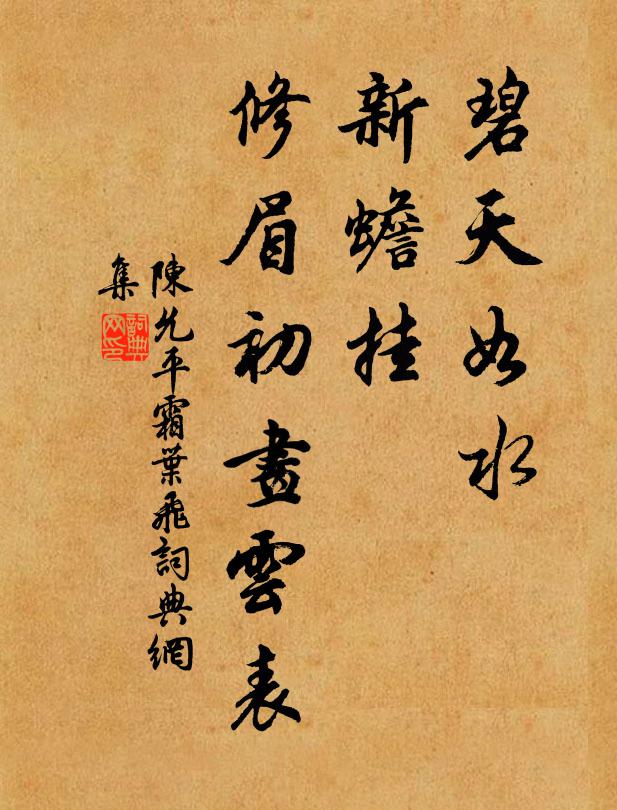 碧天如水
新蟾挂
修眉初畫雲表
陳允平霜葉飛詞典網
集
詞典
网印